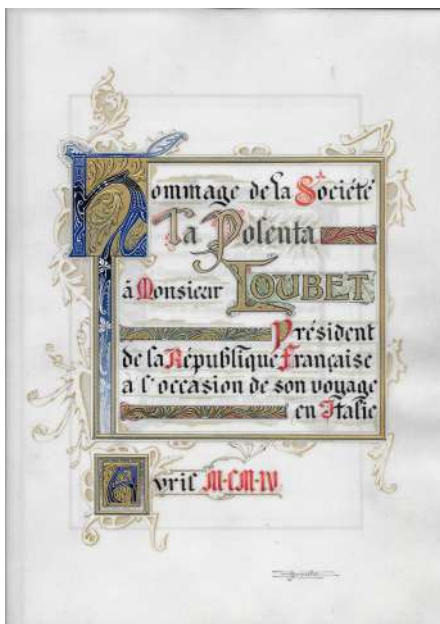 Hommage de la Société
La Polenta
à Monsieur LOUBET
Président
de la République Française
a l'occasion de son voyage
en Italie
Avril M·CM·IV